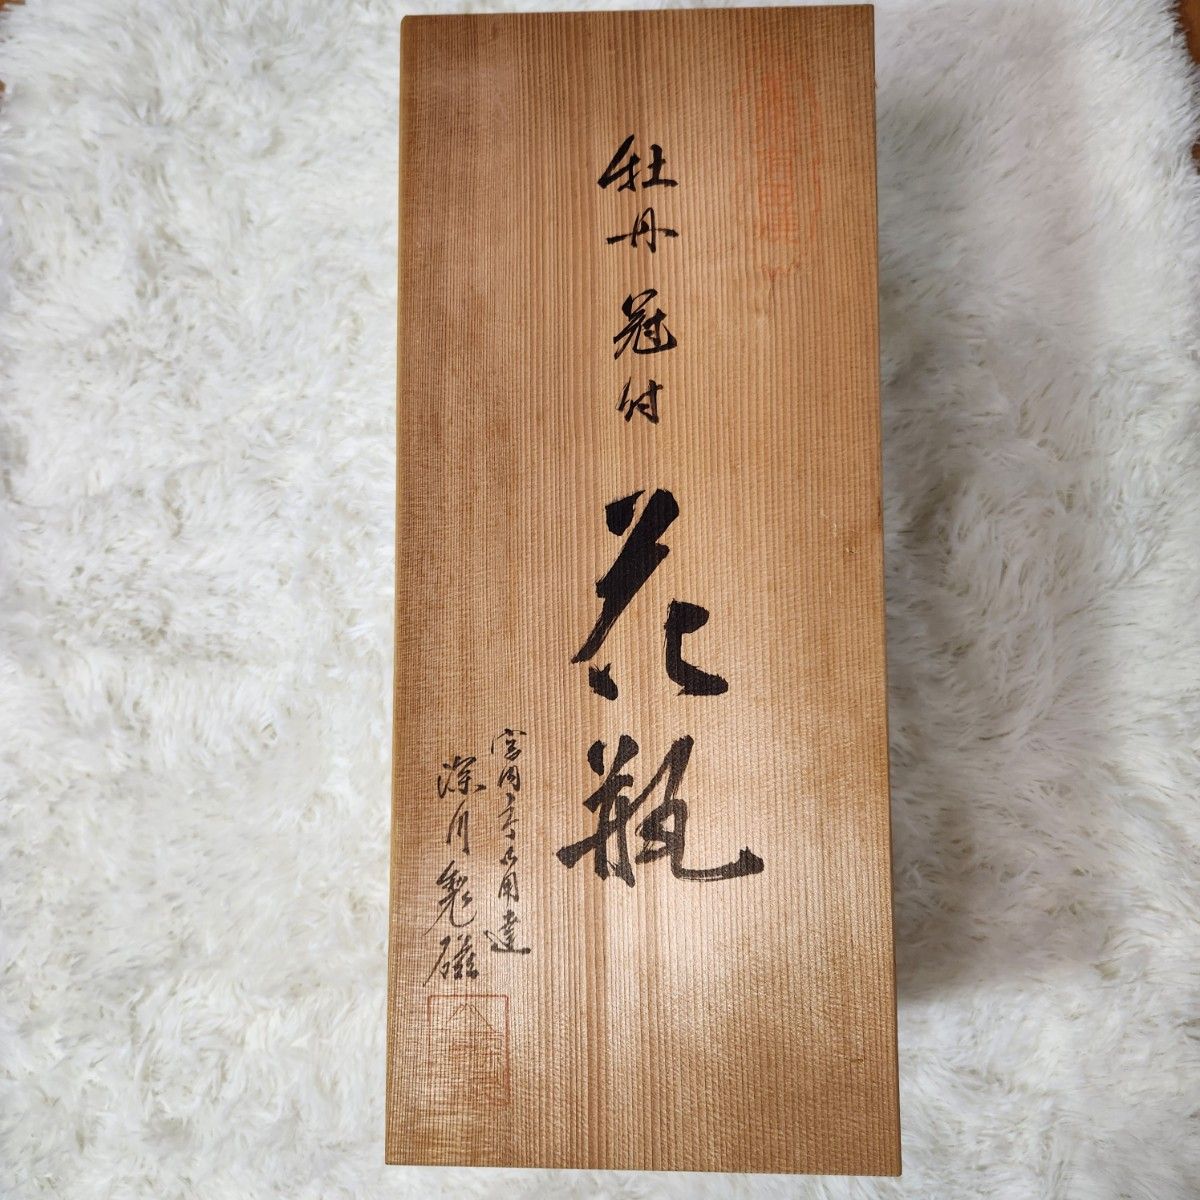 牡丹冠付
花瓶
宮内庁御用達
深川製磁